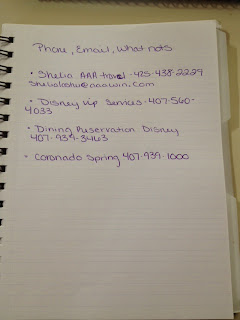 Phone, Email, What nots
• Shelia AAA travel - 425-438-2229
• Disney Vip Services - 407-560-
4033
• Dining Reservation Disney
407-939-3463
• Coronado Spring 407-939-1000